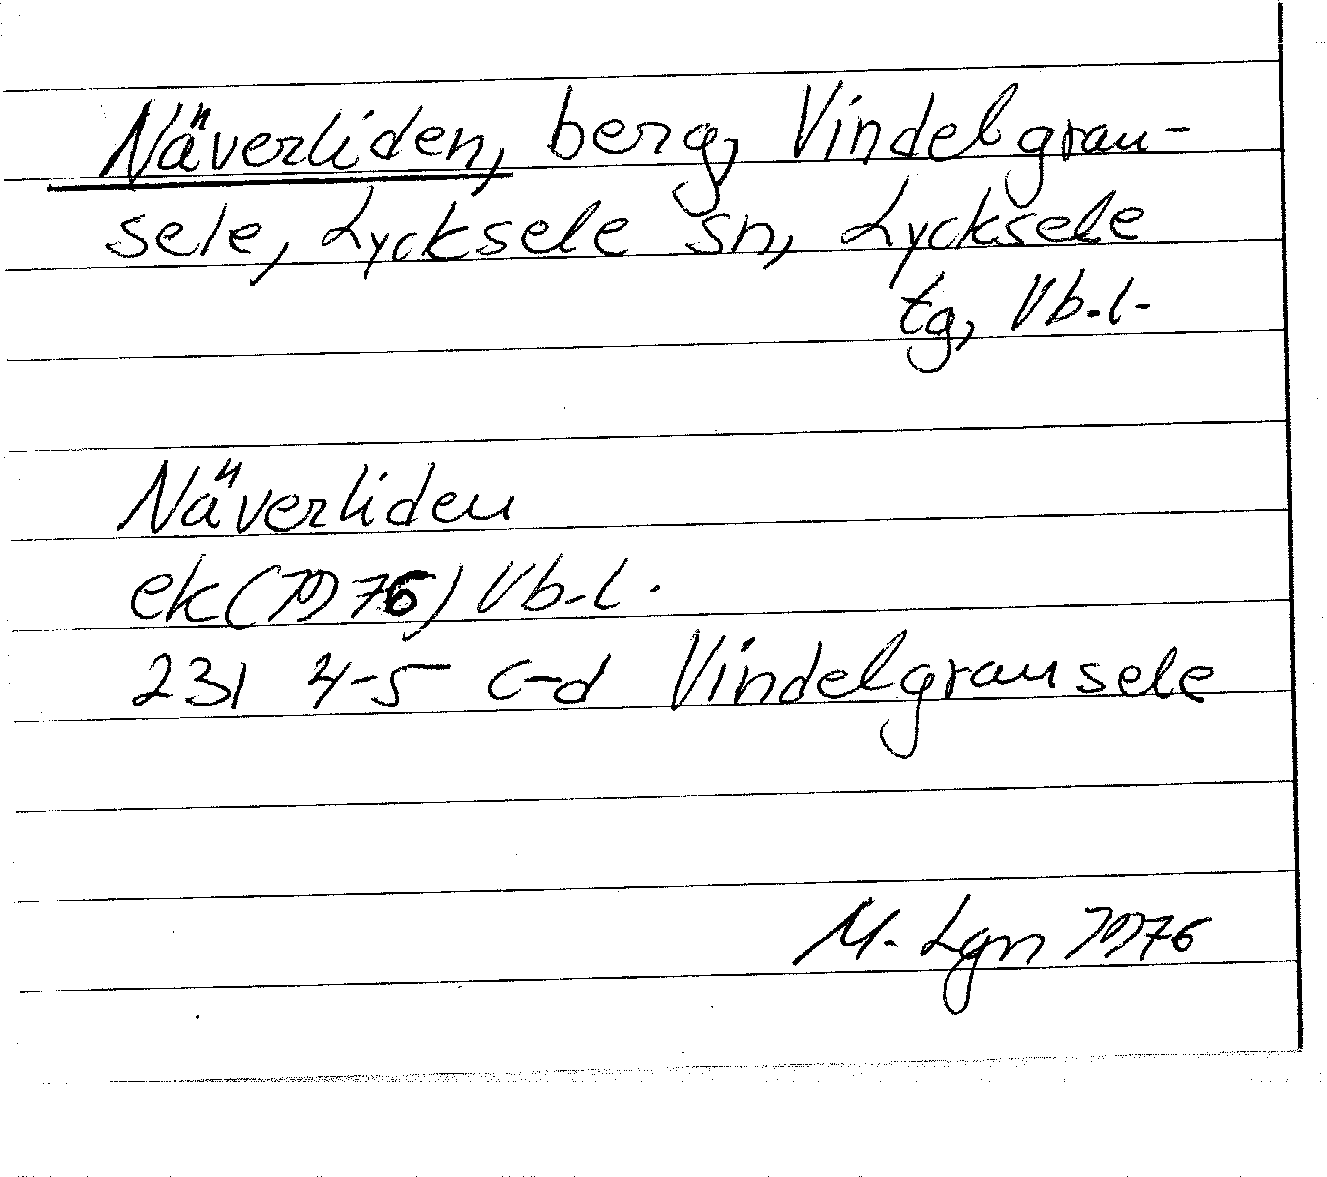 Näverliden, berg, Vindelgrau-
sele, Lycksele sn, Lycksele
tg, Vb.l.
Näverliden
ek (1976) Vb.l.
231 4-5 c-d Vindelgransele
M. Lgn 1976